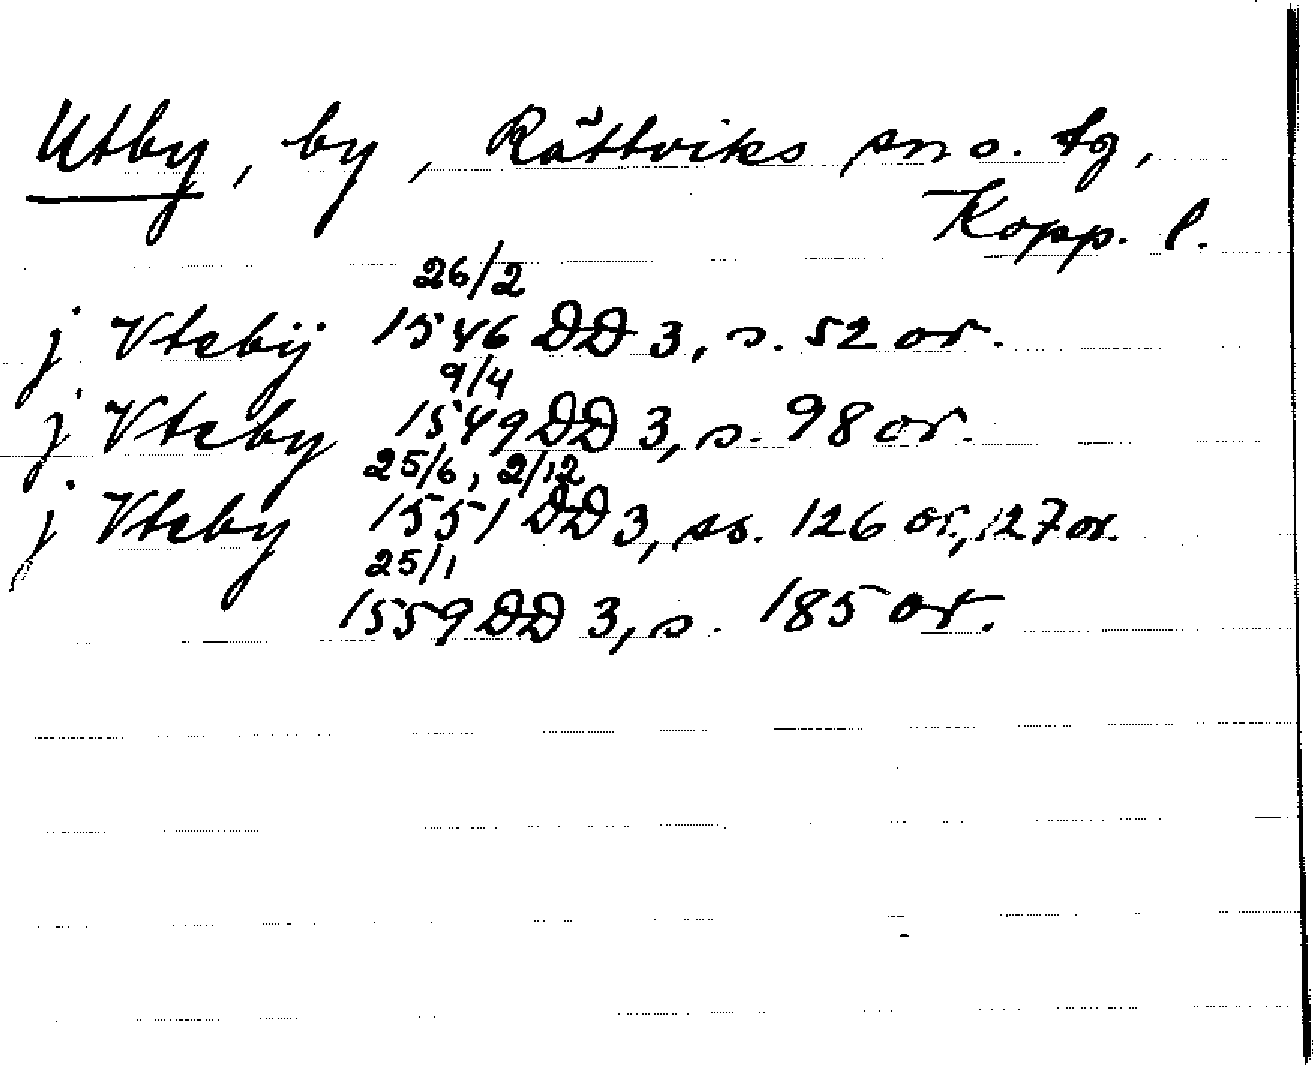 Utby, by, Rättviks sn o. tg,
Kopp. l.
26/2
j Vtebÿ 1546 DD 3, s. 52 or.
9/4
j Vteby 1549 DD 3, s. 98 or.
25/6, 2/12
j Vteby 1551 DD 3, ss. 126 or, 127 or.
25/1
1559 DD 3, s. 185 or.